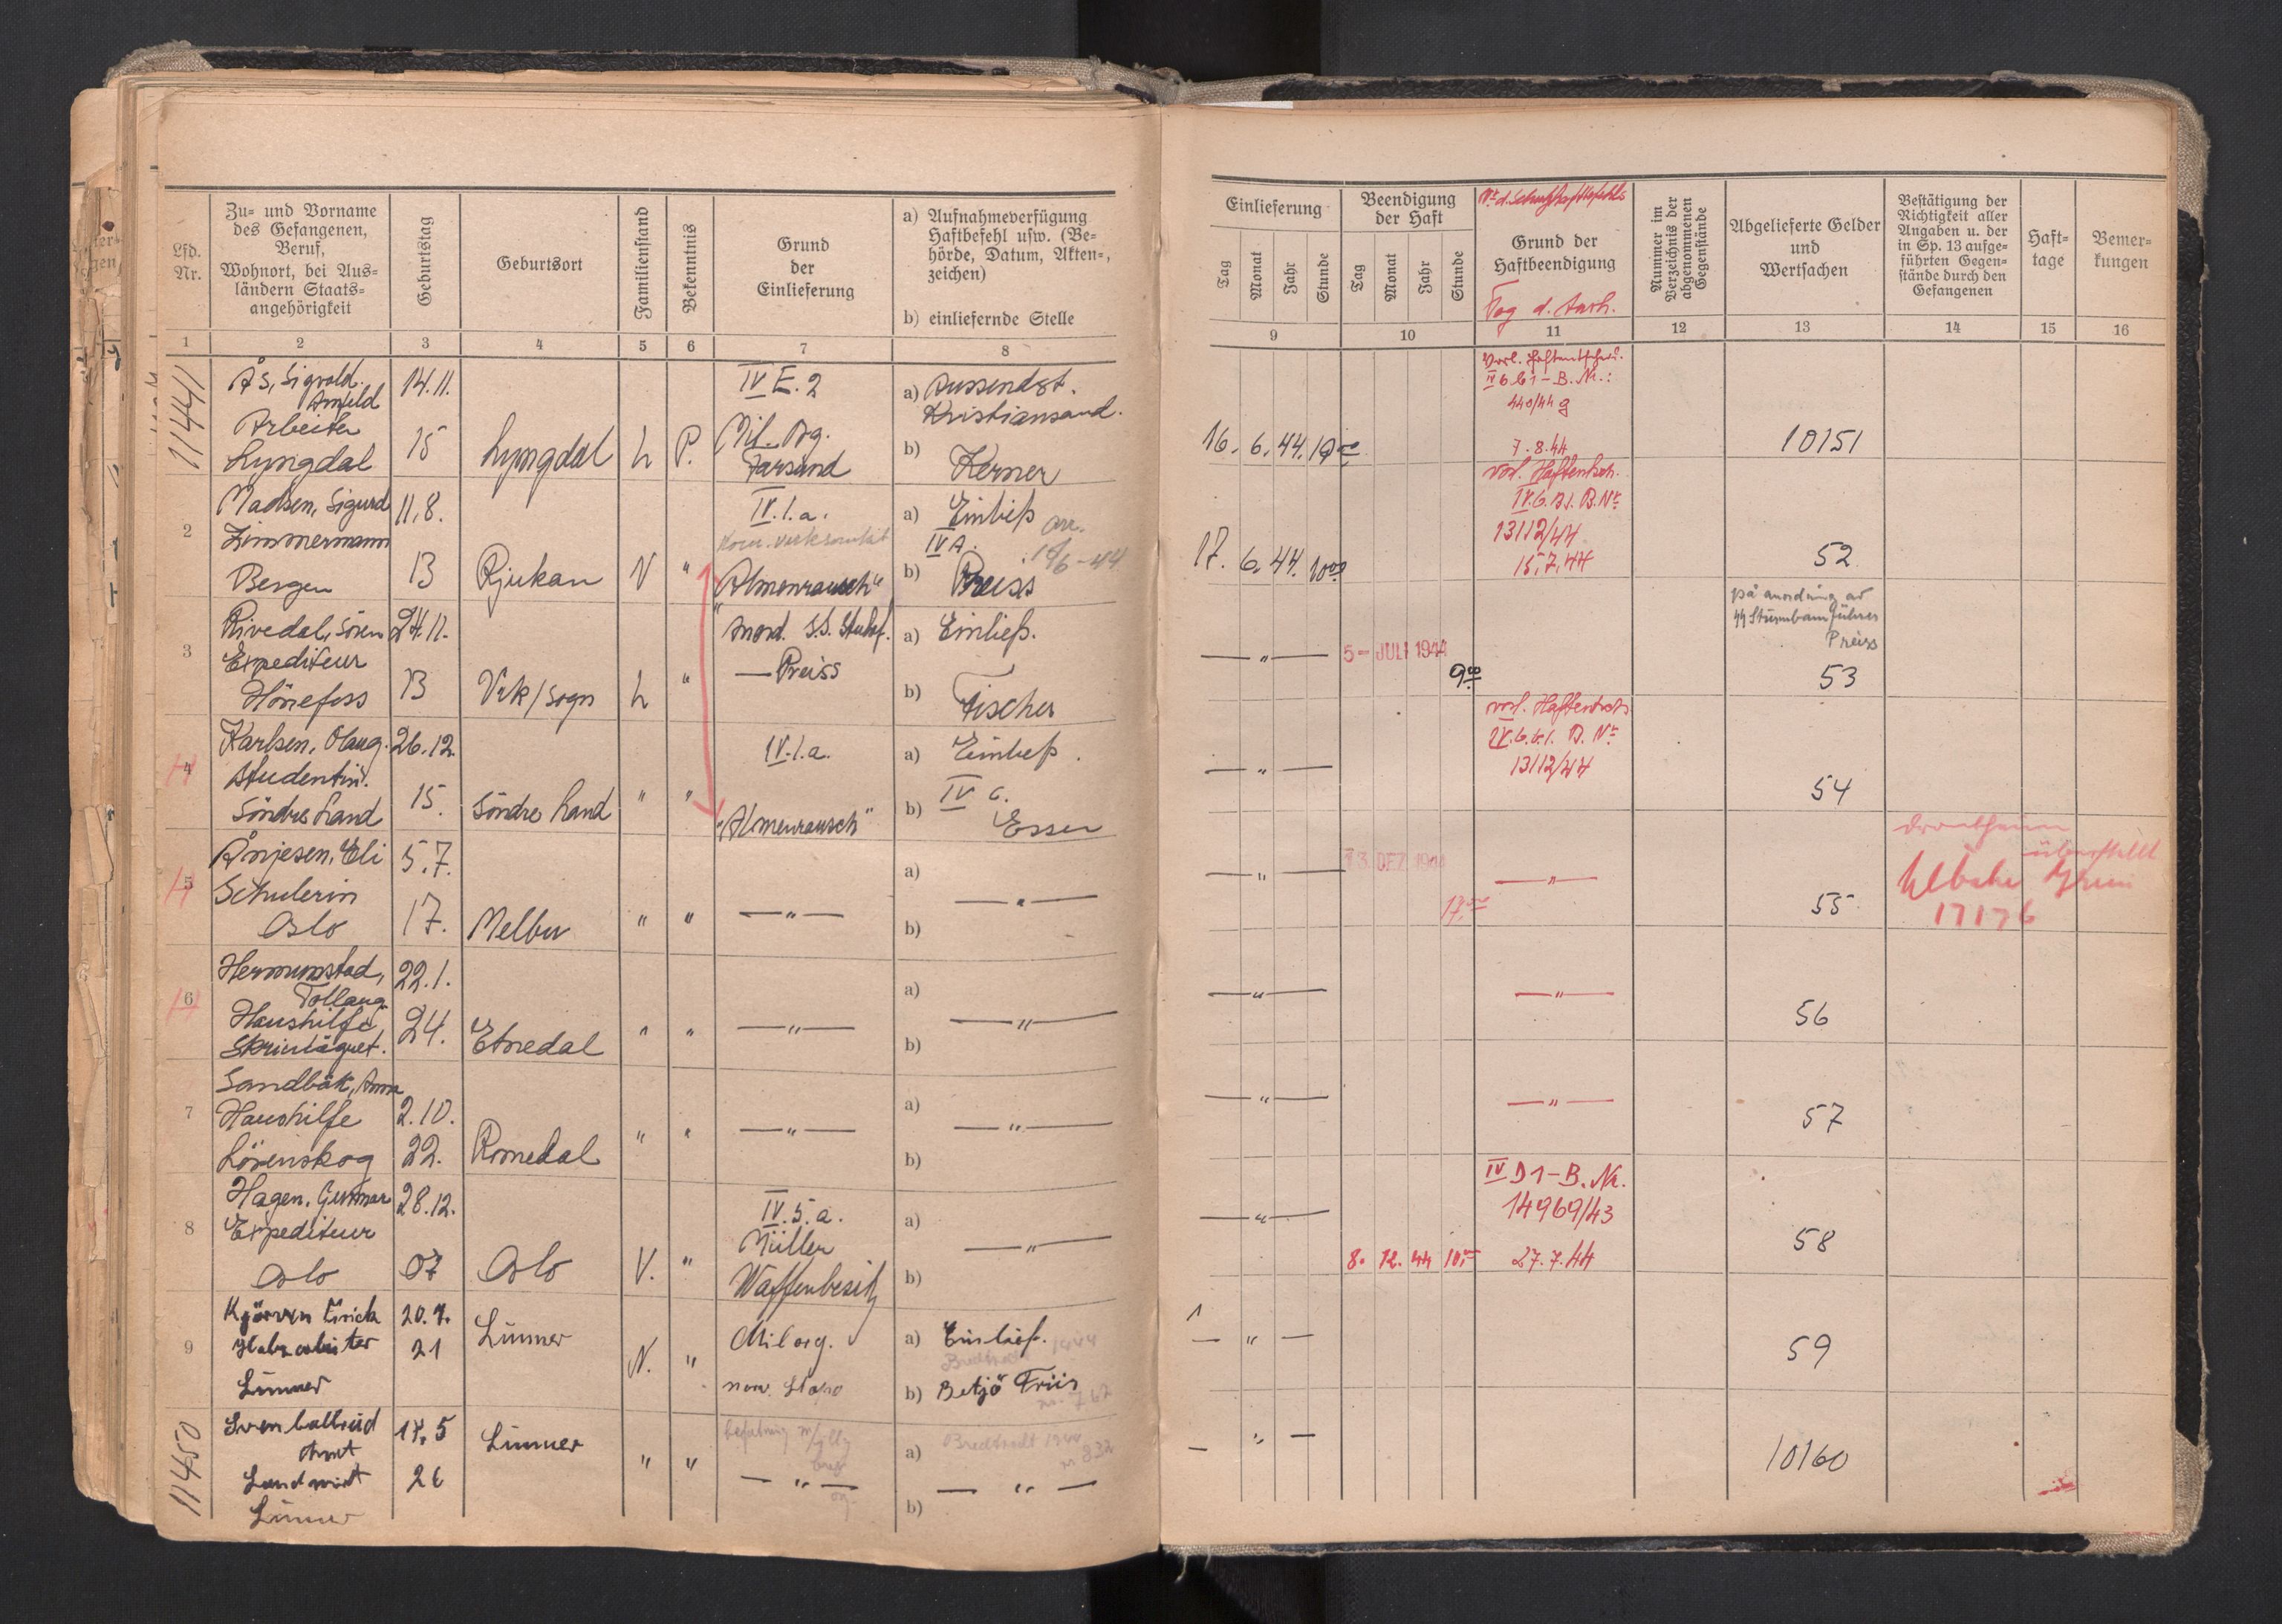 Lfd. Nr.
Zu= und Vorname des Gefangenen, Beruf, Wohnort, bei Aus= ländern Staats= angehörigkeit
Geburtstag
Geburtsort
Familienstand
Bekenntnis
Grund der Einlieferung
a) Aufnahmeverfügung Haftbefehl usw. (Be= hörde, Datum, Akten=, zeichen)
b) einliefernde Stelle
Einlieferung
Tag Monat Jahr Stunde
Beendigung der Haft
Tag Monat Jahr Stunde
Nr. d. Schutzhaftbefehls
Grund der Haftbeendigung
Tag d. Aush.
Nummer im Verzeichnis der abgenommenen Gegenstände
Abgelieferte Gelder und Wertsachen
Bestätigung der Richtigkeit aller Angaben u. der in Sp. 13 aufge= führten Gegen= stände durch den Gefangenen
Haft= tage
Bemer= kungen
1 2 3 4 5 6 7 8 9 10 11 12 13 14 15 16
11441
Ås, Sigvald
Arnfeld
Arbeiter
Lyngdal
14.11.
15
Lyngdal
L
P.
IV E. 2
Mil. Org.
Farsund
a) Aussendst.
Kristiansand.
b) Kerner
16. 6. 44. 19 00
Vorl. Haftentscheid.
IV 6 b 1 - B. Nr.:
440/44 g
7.8.44
10151
2
Madsen, Sigurd
Zimmermann
Bergen
11.8.
13
Rjukan
V
"
IV.1.a.
Kom. virksomhet
"Almenrausch"
a) Einlief
IV A.
arr.
16/6-44
b) Preiss
17. 6. 44. 10 00
vorl. Haftentsch.
IV.6.b1. B. Nr
13112/44
15.7.44
52
3
Rivedal, Sören
Expediteur
Hönefoss
24.11.
13
Vik/Sogn
L
"
Anord. S.S. Stubaf.
— Preiss
a) Einlief.
b) Fischer
— " —
5 - JULI 1944
9 00
på anordning av
SS Sturmbannführer
Preiss
53
4
Karlsen, Olaug.
Studentin.
Söndre Land
26.12.
15.
Söndre Land
"
"
IV.1.a.
"Almenrausch"
a) Einlief.
IV c.
b) Esser
— " —
vorl. Haftentsch
IV.6.b.1. B. Nr
13112/44
54
5
Ånjesen, Eli
Schülerin
Oslo
5.7.
17.
Melbu
"
"
— " —
a)
— " —
b)
— " —
13. DEZ. 1944
17.00
— " —
55
Drontheim
überstellt
17176
6
Hermumstad,
Tollaug
Haushilfe,
22.1.
24.
Etnedal
"
"
— " —
a)
— " —
b)
— " —
— " —
56
7
Sandbäk, Anna
Haushilfe
Lörenskog
2.10.
22.
Romedal
"
"
— " —
a)
— " —
b)
— " —
— " —
57
8
Hagen, Gunnar
Expediteur
Oslo
28.12.
07
Oslo
V.
"
IV.5.a.
Müller
Waffenbesitz
a)
— " —
b)
— " —
8. 12. 44 10.00
IV D1 - B. Nr.
14969/43
27.7.44
58
9
Kjörven Erich
Holzarbeiter
Lunner
20.7.
21
Lunner
N.
"
Milorg.
norw. Stapo
a) Einlief.
b) Betjö Friis
— " —
59
11450
Svenballrud
Arnt
Landwirt
Lunner
14.5
26
Lunner
"
"
— " —
a) Bredtvedt 1944
nr 832
— " —
b)
— " —
10160